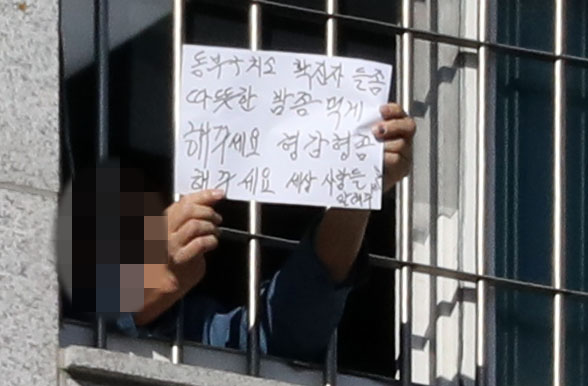 동부구치소 확진자 들좀
따뜻한 밤좀 먹게
해주세요 형감형좀
해주세요 세상 사람들